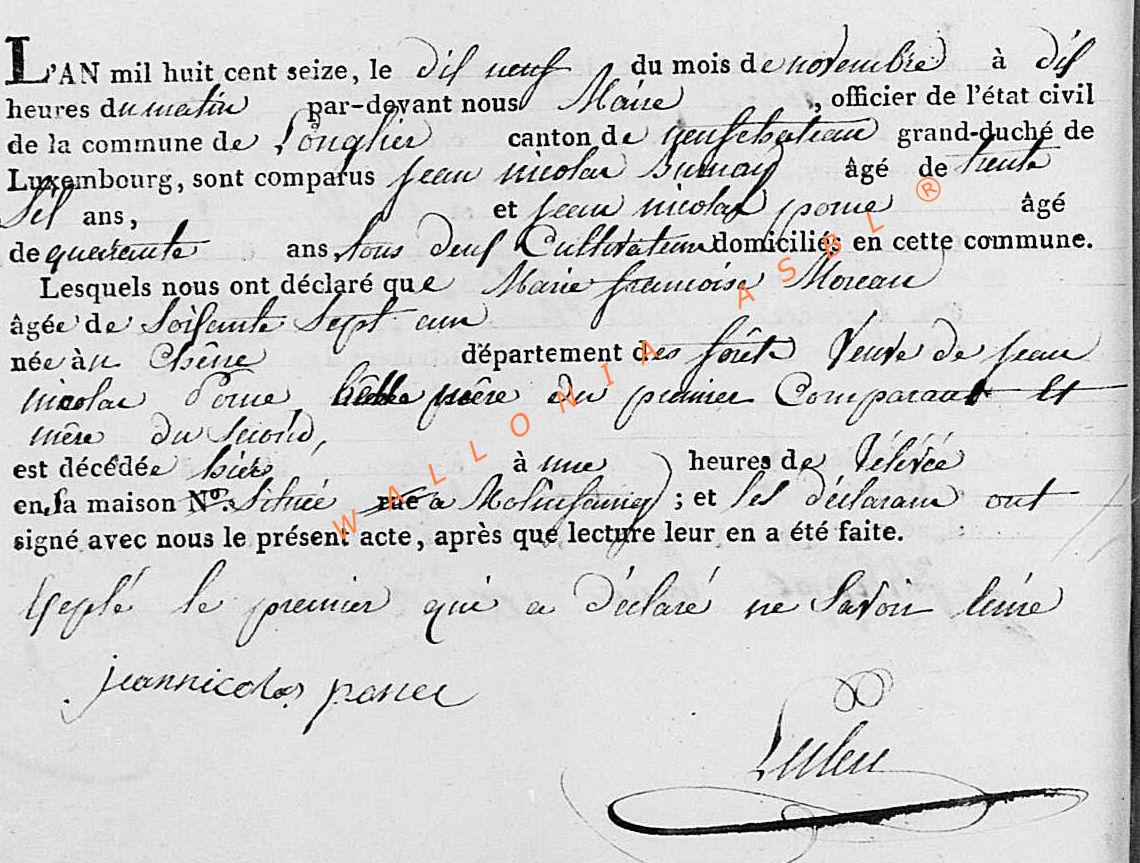 L'AN mil huit cent seize, le dix neuf du mois de novembre à dix
heures du matin par-devant nous Maire, officier de l'état civil
de la commune de Longlier canton de neufchateau grand-duché de
Luxembourg, sont comparus jean nicolas âgé de trente
six ans, et jean nicolas porne âgé
de quarante ans, tous deux Cultivateurs domiciliés en cette commune.
Lesquels nous ont déclaré que Marie françoise Moreau
âgée de Soixante Sept ans
née à Chêne département des forêts Veuve de jean
nicolas Porne mère du premier Comparant et
mère du Second,
est décédée hier à une heures de rélévée
en sa maison N°. Située rue a Molinfaing ; et les déclarans ont
signé avec nous le présent acte, après que lecture leur en a été faite.
le premier qui a déclaré ne Savoir
jeannicolas
WALLONIA ASBL ®